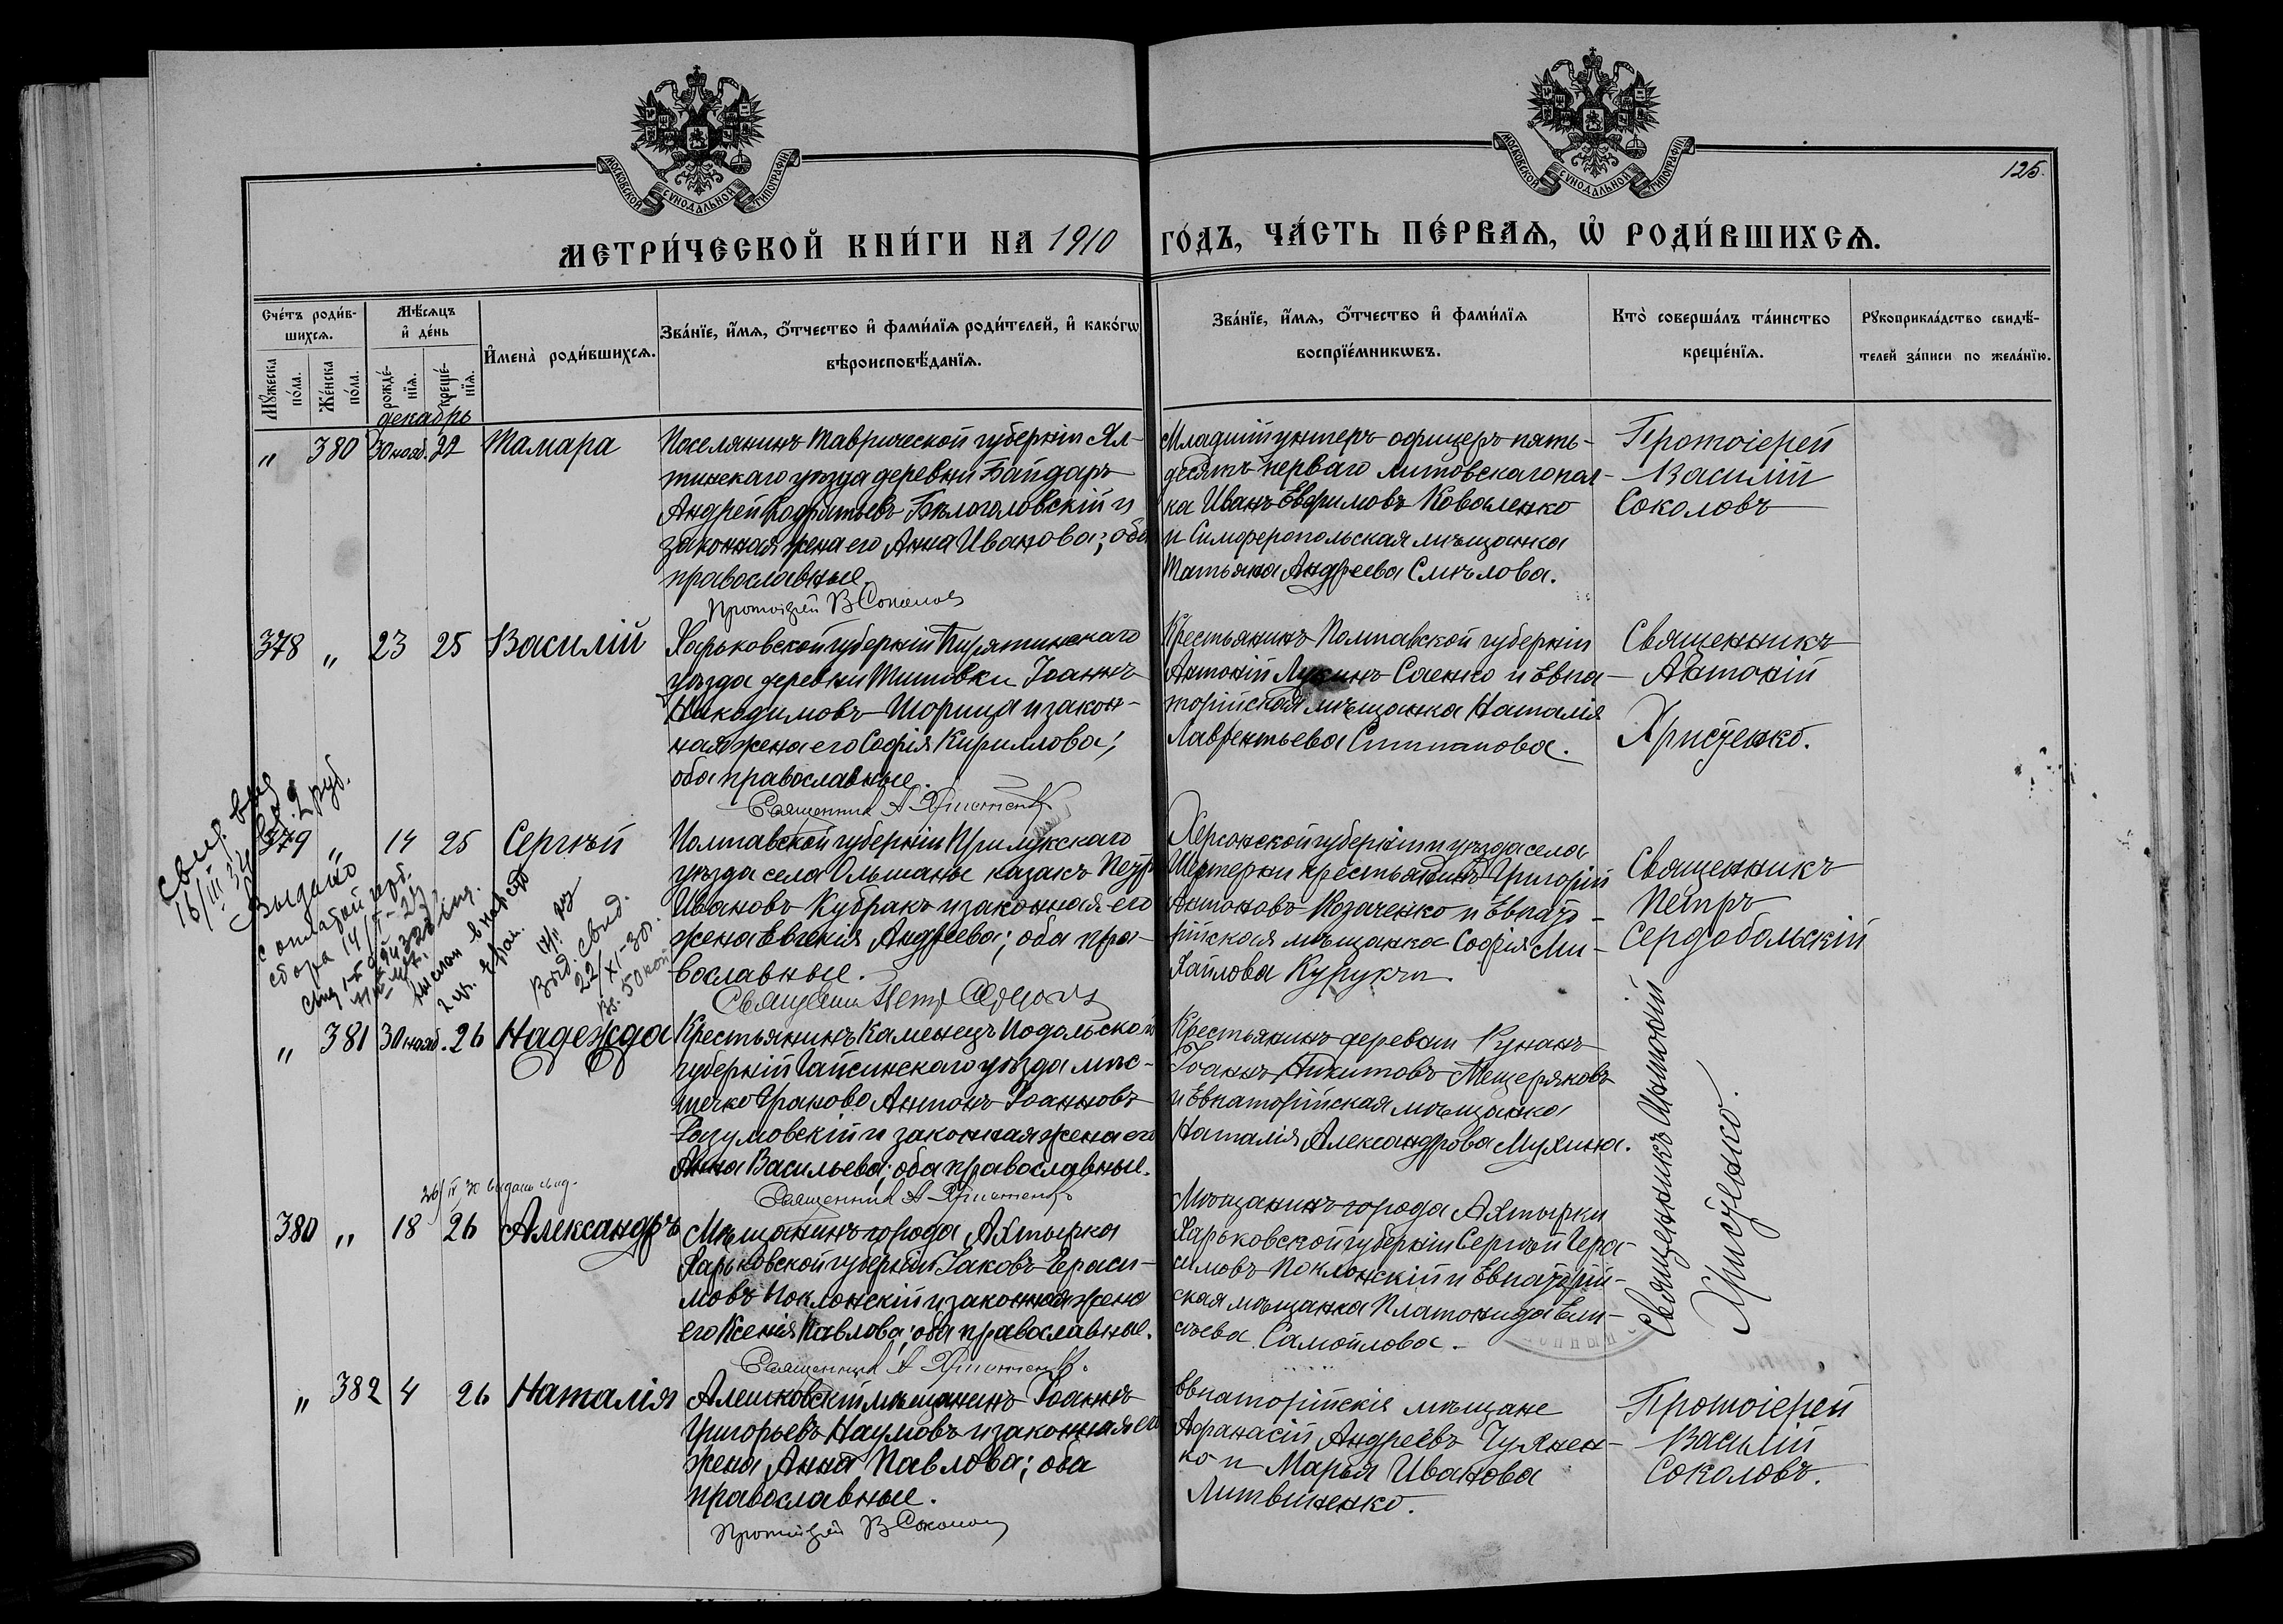 МОСКОВСКОЙ СѴНОДАЛЬНОЙ ТИПОГРАФІИ.
МОСКОВСКОЙ СѴНОДАЛЬНОЙ ТИПОГРАФІИ.
125.
МЕТРИ́ЧЕСКОЙ КНИ́ГИ НА 1910 ГО́ДЪ, ЧА́СТЬ ПЕ́РВАѦ, Ѡ҆ РОДИ́ВШИХСѦ.
Сче́тъ роди́в-
шихсѧ.
Мꙋ́жеска по́ла.
Же́нска по́ла.
Мѣ́сѧцъ
и҆ де́нь
рожде́-
нїѧ.
креще́-
нїѧ.
И҆мена̀ роди́вшихсѧ.
Зва́нїе, и҆́мѧ, ѻ҆́тчество и҆ фами́лїѧ роди́телей, и҆ како́гѡ
вѣроисповѣ́данїѧ.
Зва́нїе, и҆́мѧ, ѻ҆́тчество и҆ фами́лїѧ
воспрїе́мникѡвъ.
Кто̀ соверша́лъ та́инство
креще́нїѧ.
Рꙋкоприкла́дство свидѣ́-
телей за́писи по жела́нїю.
декабрь
" 380 30 нояб. 22 Тамара
Поселянинъ Таврической губерніи Ял-
тинскаго уѣзда деревни Байдаръ
Андрей Кодратьевъ Бѣлоголовскій и
законная жена его Анна Иванова; оба
православные.
Протоіерей В Соколов
Младшій унтеръ-офицеръ пять-
десятъ перваго Литовскаго пол-
ка Иванъ Евфимовъ Коваленко
и Симферопольская мѣщанка
Татьяна Андреева Смѣлова.
Протоіерей
Василій
Соколовъ
378 " 23 25 Василій
Харьковской губерніи Пирятинскаго
уѣзда деревни Титовки Іоаннъ
Никодимовъ Шорица и закон-
ная жена его Софія Кириллова;
оба православные.
Священник А Христенко
Крестьянинъ Полтавской губерніи
Антоній Лукинъ Саенко и Евпа-
торійская мѣщанка Наталія
Лаврентьева Ститова.
Священникъ
Антоній
Христенко.
379 " 14 25 Сергѣй
Полтавской губерніи Прилукскаго
уѣзда села Ольшаны казакъ Петръ
Ивановъ Кубракъ и законная его
жена Евгенія Андреева; оба пра-
вославные.
Священник Петр
Херсонской губерніи и уѣзда села
Шестерни крестьянинъ Григорій
Антоновъ Козаченко и Евпато-
рійская мѣщанка Софія Ми-
хайлова Курукчи.
Священникъ
Петръ
Сердобольскій
Свид. выд
16/III 34 вз. 2 руб.
Выдано
с оплатой герб.
сбора 14/
2 Выд. свид.
22/XI-30г.
Вз. 50 коп
" 381 30 нояб. 26 Надежда
Крестьянинъ Каменецъ Подольской
губерніи Гайсинскаго уѣзда мѣс-
течко Граново Антонъ Іоанновъ
Разумовскій и законная жена его
Анна Васильева; оба православные.
Священник А Христенко
Крестьянинъ деревни Кунанъ
Іоаннъ Никитовъ Мещеряковъ
и Евпаторійская мѣщанка
Наталія Александрова Мухина.
Священникъ Антоній
Христенко.
26/IV 30 выдано свид.
380 " 18 26 Александръ
Мѣщанинъ города Ахтырка
Харьковской губерніи Іаковъ Гераси-
мовъ Поклонскій и законная жена
его Ксенія Павлова; оба православные.
Священник А Христенко.
Мѣщанинъ города Ахтырки
Харьковской губерніи Сергѣй Гера-
симовъ Поклонскій и Евпаторій-
ская мѣщанка Платонида Ели-
сѣева Самойлова.
" 382 4 26 Наталія
Алешковскій мѣщанинъ Іоаннъ
Григорьевъ Наумовъ и законная его
жена Анна Павлова; оба
православные.
Протоіерей В Соколов
Евпаторійскіе мѣщане
Афанасій Андреевъ Чухнен-
ко и Марья Иванова
Литвиненко.
Протоіерей
Василій
Соколовъ.